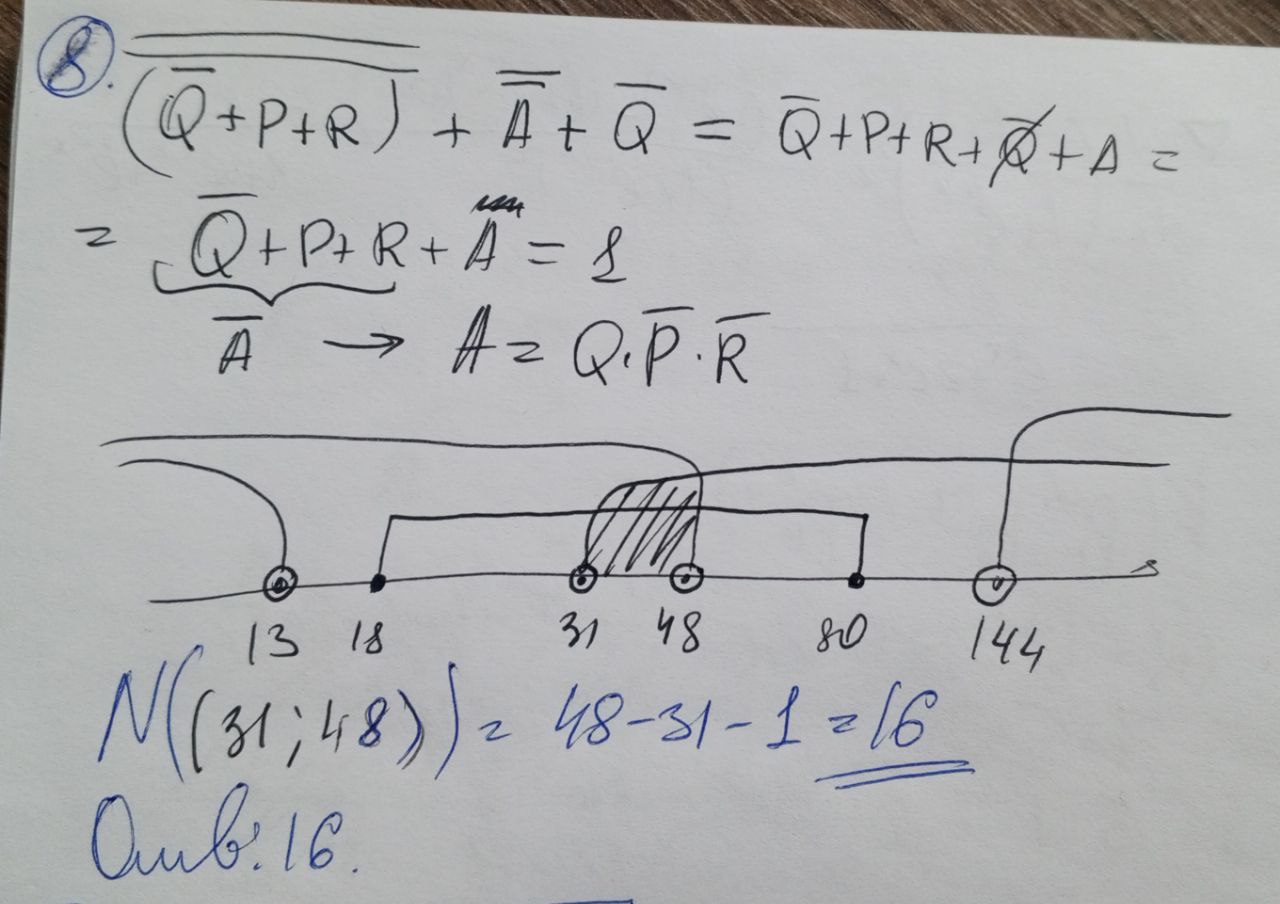 8.
(Q̅+P+R)̿ + A̿ + Q̅ = Q̅+P+R+Q̅+A =
= Q̅+P+R+A = 1
A̅ → A = Q·P̅·R̅
13 18 31 48 80 144
N((31;48)) = 48-31-1 = 16
Отв: 16.